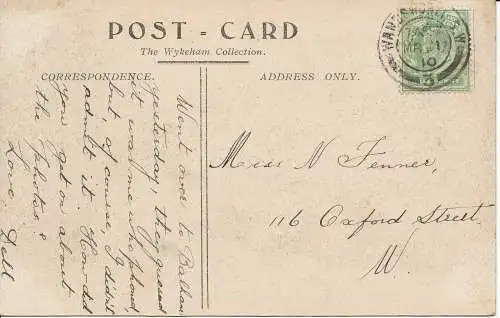 POST - CARD
The Wykeham Collection.
CORRESPONDENCE.
ADDRESS ONLY.
Went over to Balham
yesterday, they guessed
it was me who phoned,
but, of course, I didn't
admit it. How did
you get on about
the photos?
Love, Dell
Miss N Fenner,
116 Oxford Street
W.
WANDSWORTH S.W.
11
10
3